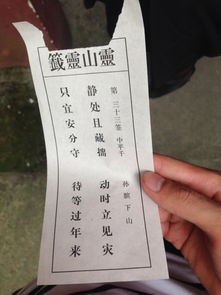 籤靈山靈
第三十三签 中平干
孙膑下山
静处且藏拙
动时立见灾
只宜安分守
待等过年来